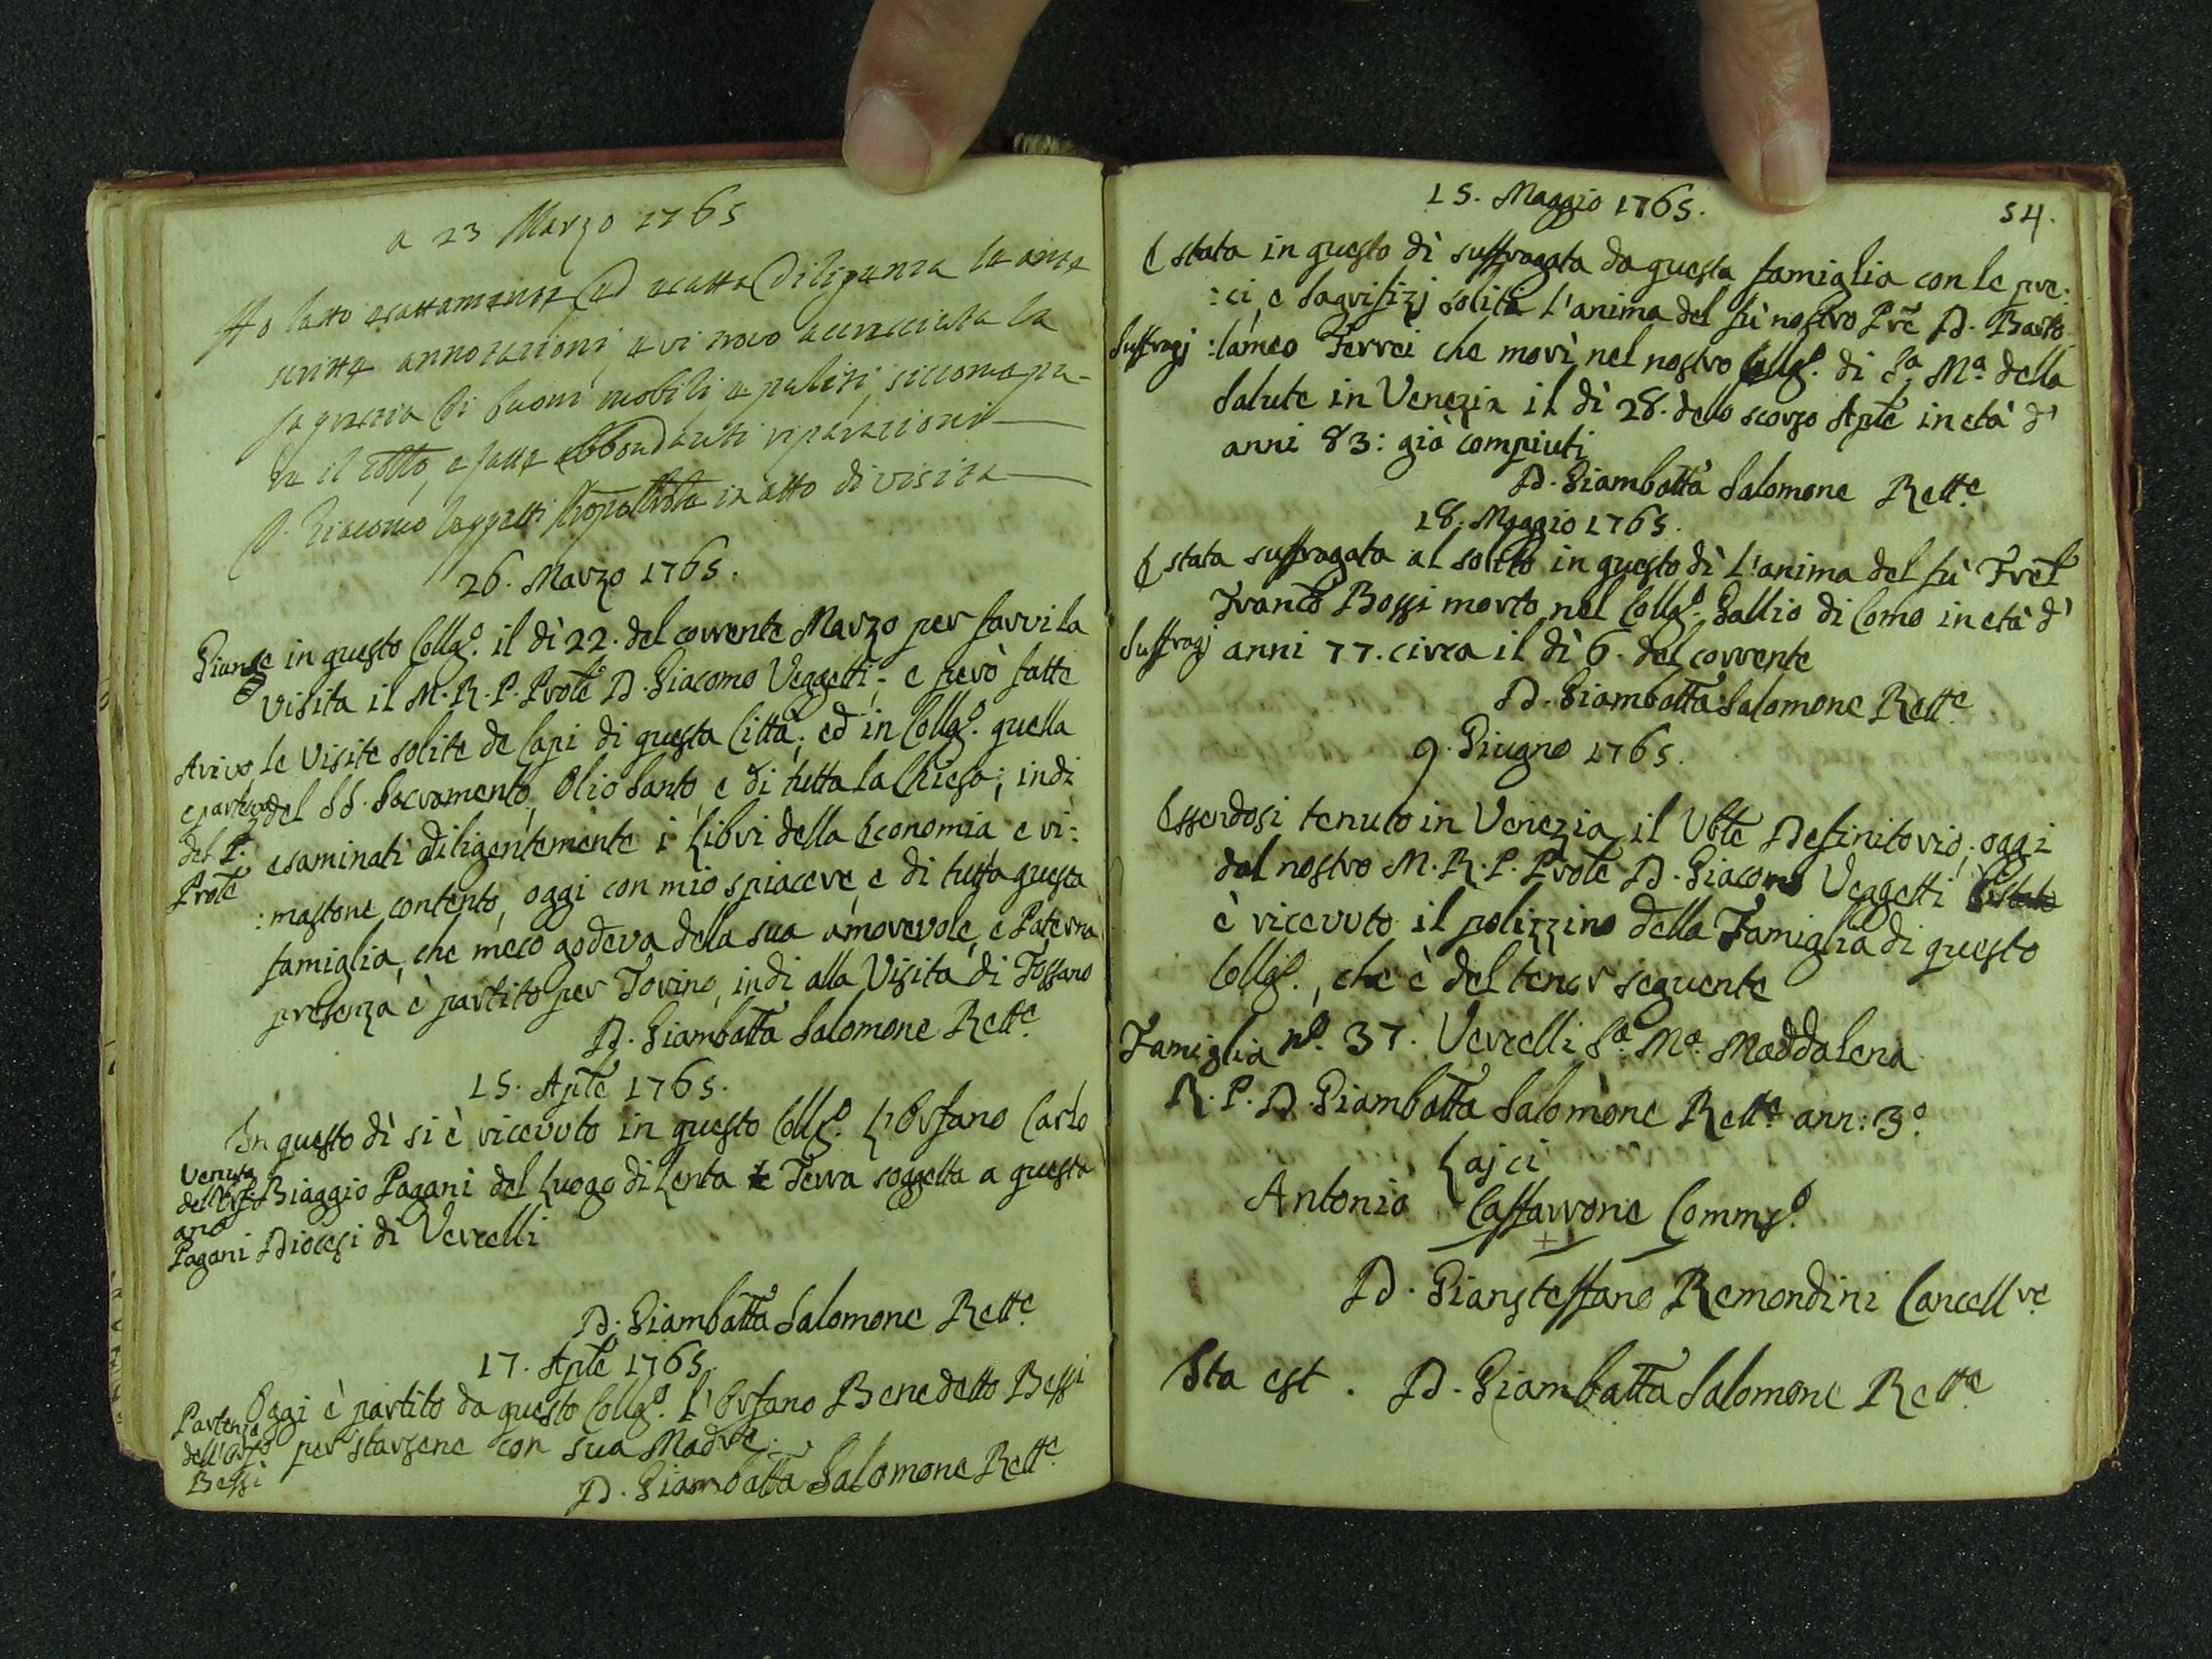 a 23 Marzo 1765
Ho letto esattamente ed esatta diligenza le ante
scritte annotazioni, e vi trovo accresciuta la
sagrestia di buoni mobili, e puliti, siccome pu-
re il tetto, e fatte abbondanti riparazioni
D. Giacomo Vaggetti in atto di visita
26. Marzo 1765.
Giunse in questo Collg.º il dì 22. del corrente Marzo per farvi la
visita il M. R. P. Prõle D. Giacomo Vaggetti; e però fatte
Arivo le visite solite de Capi di questa Città; ed in Collg.º quella
e partenza del SS. Sacramento, Olio Santo, e di tutta la Chiesa; indi
del P. esaminati diligentemente i Libri della Economia, e ri:
Prõle :mastone contento, oggi con mio spiacere, e di tutta questa
famiglia, che meco godeva della sua amorevole, e Paterna
presenza è partito per Torino, indi alla Visita di Fossano
D. Giambatta Salomone Rett.e
15. Aple 1765.
In questo dì si è ricevuto in questo Collg.º L'Orfano Carlo
Venuta
dell'Orf- Biaggio Pagani del Luogo di Lenta Terra soggetta a questa
ano
Pagani Diocesi di Vercelli
D. Giambatta Salomone Rett.e
17. Aple 1765.
Oggi è partito da questo Collg.º l'Orfano Benedetto Bessi
Partenza
dell'Orf.º per starsene con sua Madre.
Bessi
D. Giambatta Salomone Rett.e
15. Maggio 1765.
54.
È stata in questo dì suffragata da questa famiglia con le pre:
:ci, e Sagrifizj soliti l'anima del fù nostro Prẽ D. Barto
Suffragj :lameo Ferrei che morì nel nostro Collg.º di S.a M.a della
Salute in Venezia il dì 28. dello scorso Aple in età d'
anni 83: già compiuti
D. Giambatta Salomone Rett.e
18. Maggio 1765.
È stata suffragata al solito in questo dì l'anima del fù Frel
Franco Bossi morto nel Collg.º Gallio di Como in età d'
Suffragj anni 77. circa il dì 6. del corrente
D. Giambatta Salomone Rett.e
9. Giugno 1765.
Essendosi tenuto in Venezia il Vble Definitorio; oggi
dal nostro M. R. P. Prõle D. Giacomo Vaggetti
è ricevuto il polizzino della Famiglia di questo
Collg.º, che è del tenor seguente
Famiglia n.º 37. Vercelli S.a M.a Maddalena
R. P. D. Giambatta Salomone Rett.e ann: 3.º
Lajci
Antonio Caffarrone Comms.º
D. Giansteffano Remondini Cancell.re
Ita est. D. Giambatta Salomone Rett.e